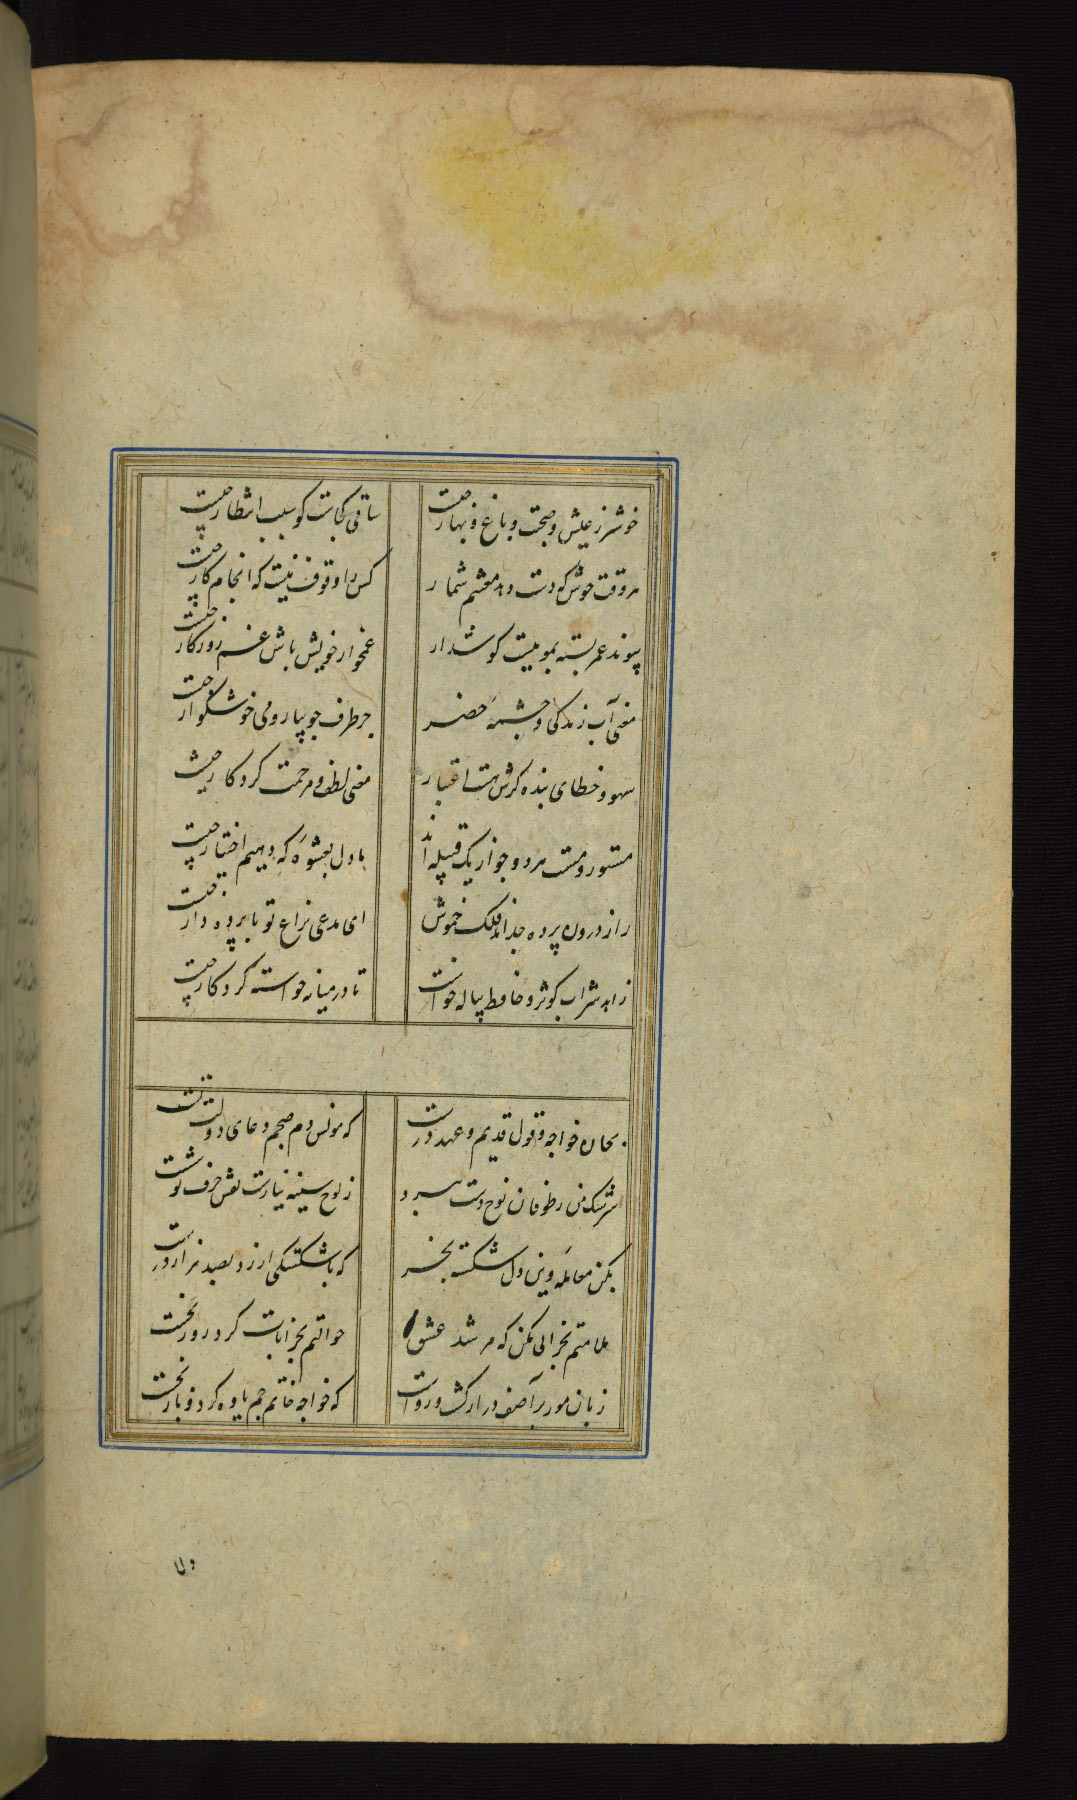 خوشتر ز عیش و صحبت و باغ و بهار چیست ساقی کجاست کو سبب انتظار چیست
هر وقت خوش که دست دهد مغتنم شمار کس را وقوف نیست که انجام کار چیست
پیوند عمر بسته بموییست گوش دار غمخوار خویش باش غم روزگار چیست
معنی آب زندگی و چشمه خضر جز طرف جویبار و می خوشگوار چیست
سهو و خطای بنده گرش هست اعتبار معنی لطف و مرحمت کردگار چیست
مستور و مست هر دو چو از یک قبیله‌اند ما دل بعشوه که دهیم اختیار چیست
راز درون پرده چه داند فلک خموش ای مدعی نزاع تو با پرده دار چیست
زاهد شراب کوثر و حافظ پیاله خواست تا در میانه خواسته کردگار چیست
بجان خواجه و قول قدیم و عهد درست که مونس دم صبحم دعای دولت تست
سرشک من ز طوفان نوح دست ببرد ز لوح سینه نیارست نقش حرف تو شست
بکن معامله وین دل شکسته بخر که با شکستگی ارزد بصد هزار درست
ملامتم بخرابی مکن که مرشد عشق حوالتم بخرابات کرد روز نخست
زبان مور بر آصف دراز گشت و رواست که خواجه خاتم جم یاوه کرد و باز نجست